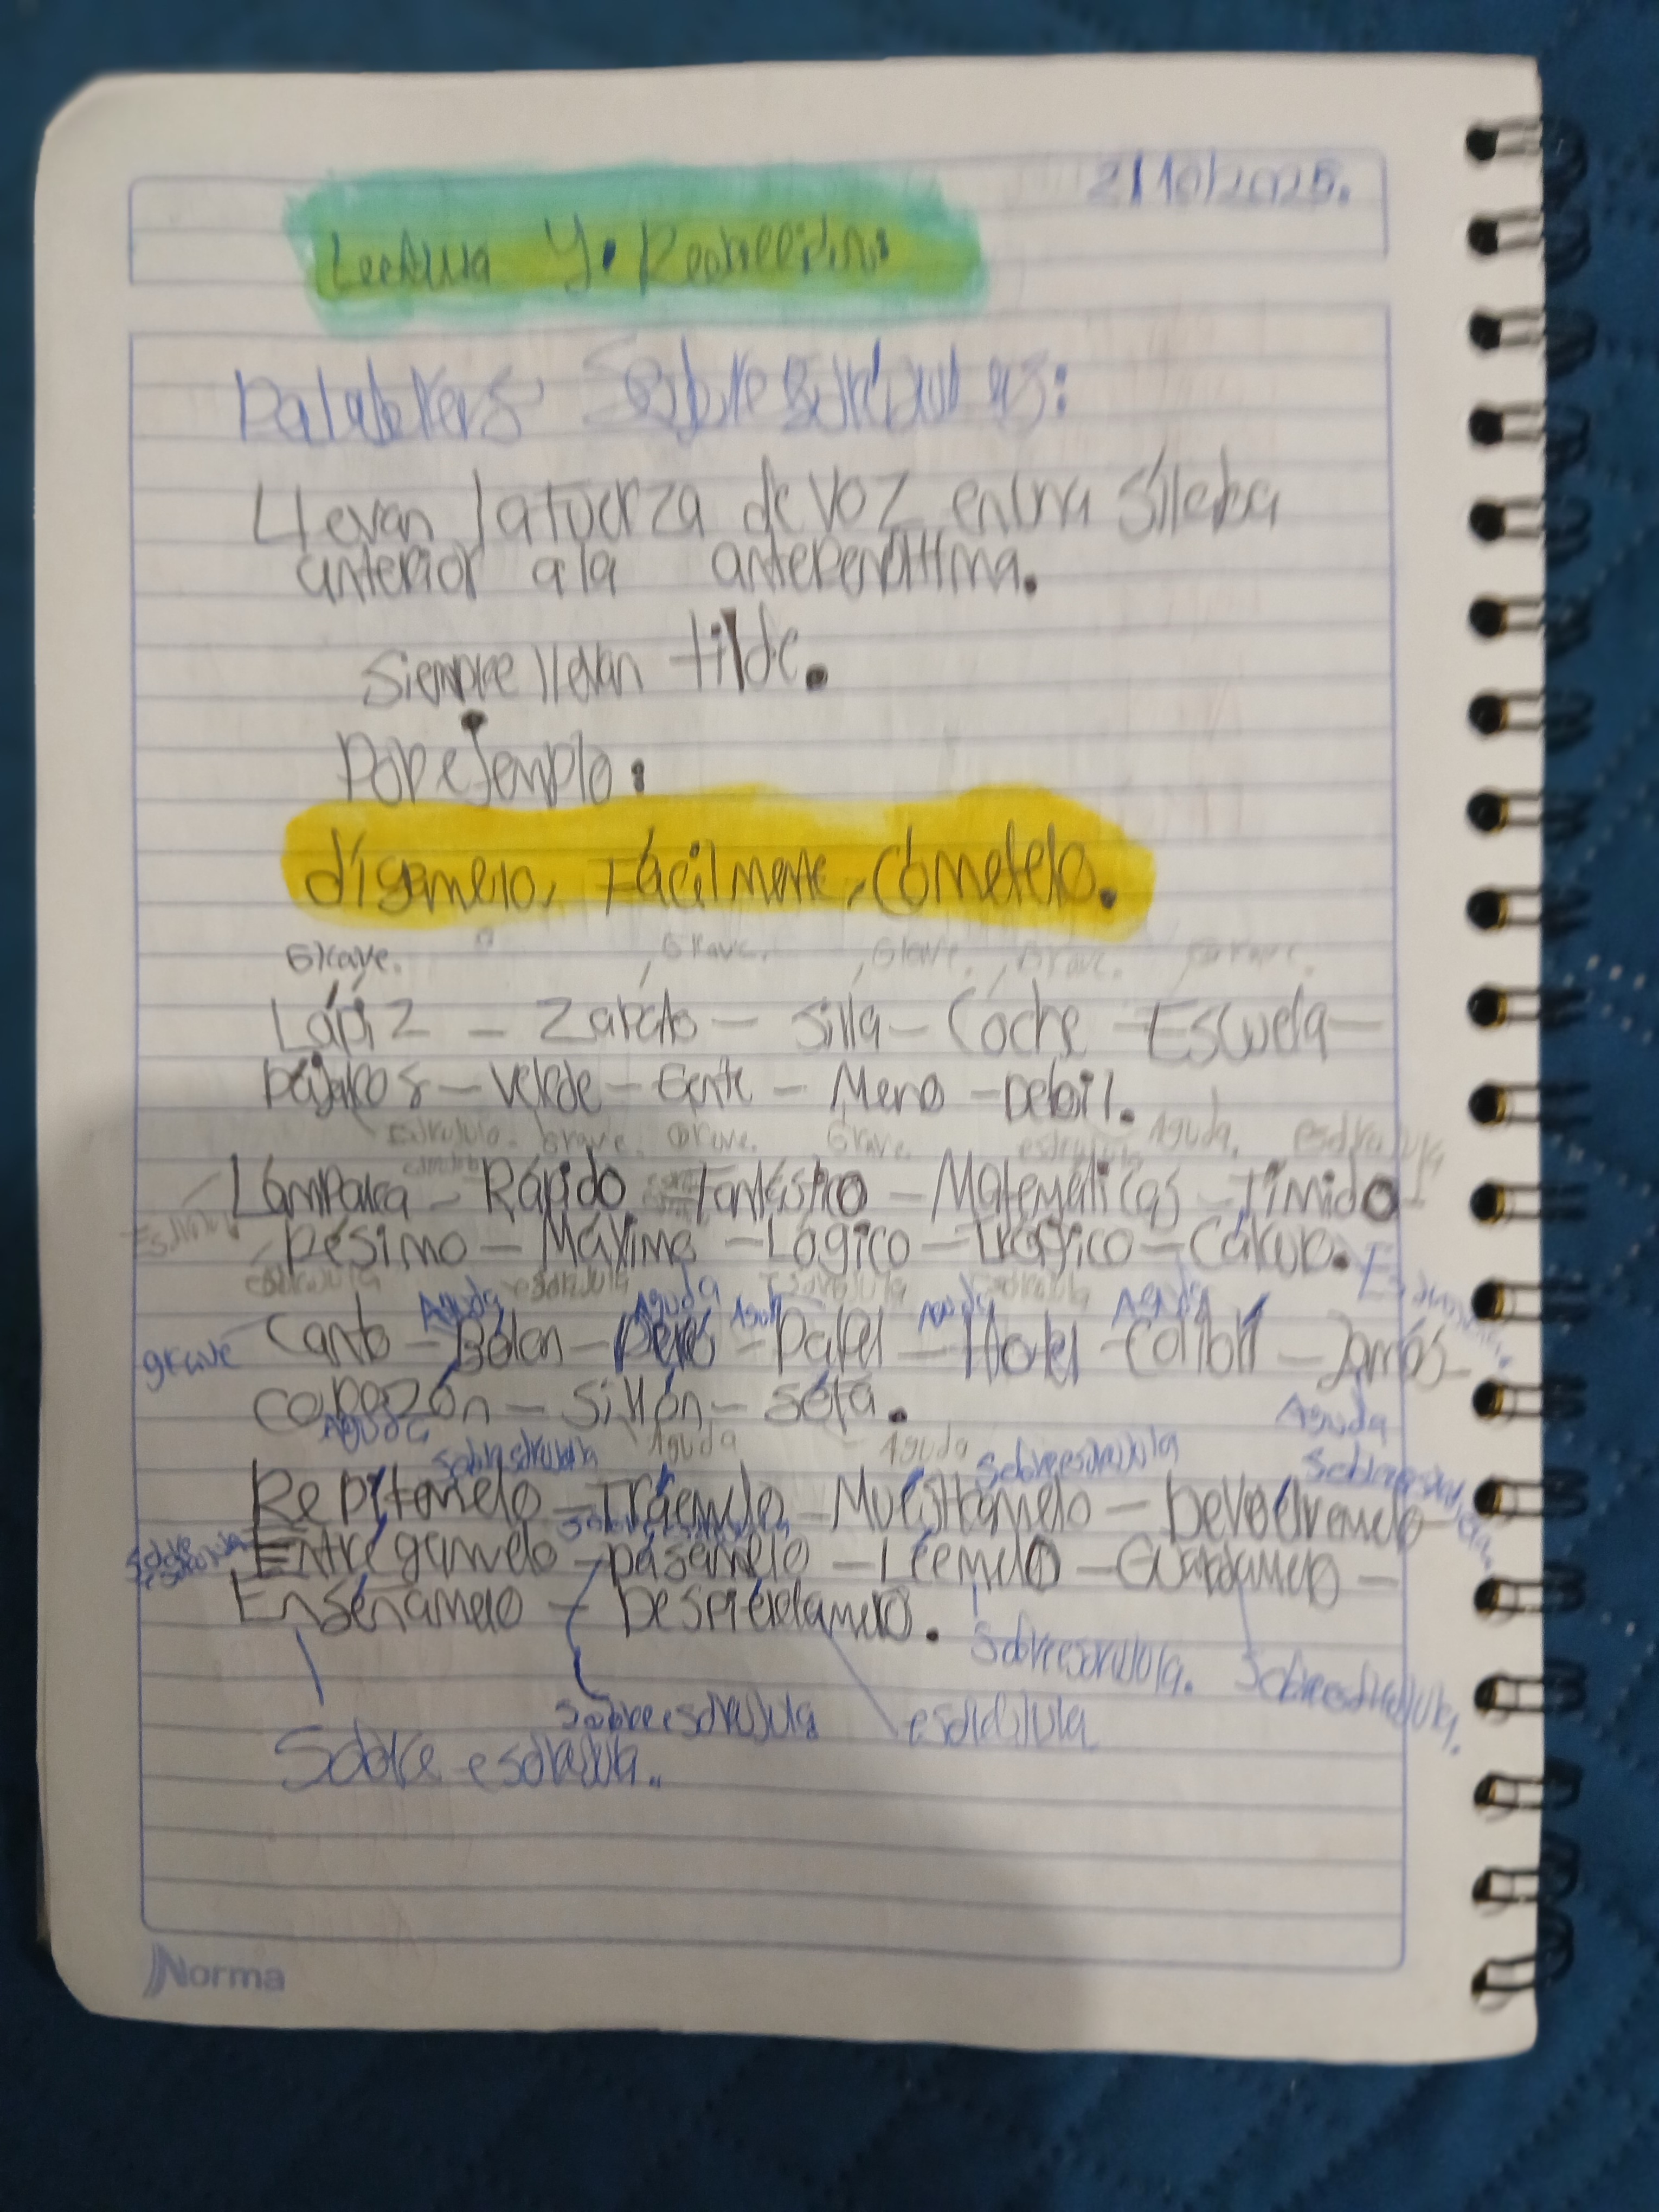 2/10/2025.
Lectura y. Redacción:
Palabras Sobresdrújulas:
Llevan la fuerza de voz en una sílaba
anterior a la antepenúltima.
Siempre llevan tilde.
Por ejemplo:
dígamelo, Fácilmente, Cómetelo.
Grave. Grave. Grave. Grave. Grave.
Lápiz - Zapato - Silla - Coche - Escuela -
pájaros - Verde - Gente - Meno - Debil.
Esdrujula. Grave. Grave. Grave. Aguda. esdrujula
Lámpara - Rápido - Fantástico - Matemáticas - Tímido
Pésimo - Máximo - Lógico - Trágico - Cálculo.
esdrujula esdrujula esdrujula esdrujula
Aguda Aguda Aguda Aguda Aguda
grave Canto - Bólan - Perú - Papel - Hotel - Colibrí - Jamás -
corazón - Sillón - sófa.
Aguda Aguda Aguda Aguda
Sobresdrujula Sobreesdrujula Sobreesdrujula
Repítamelo - Tráemelo - Muéstramelo - Devuélvemelo
Sobre esdrujula Entrégamelo - pásamelo - Léemelo - Guardamelo -
Enséñamelo - Despiértamelo.
Sobreesdrujula. Sobreesdrujula.
Sobreesdrujula esdrújula
Sobre esdrujula.
Norma